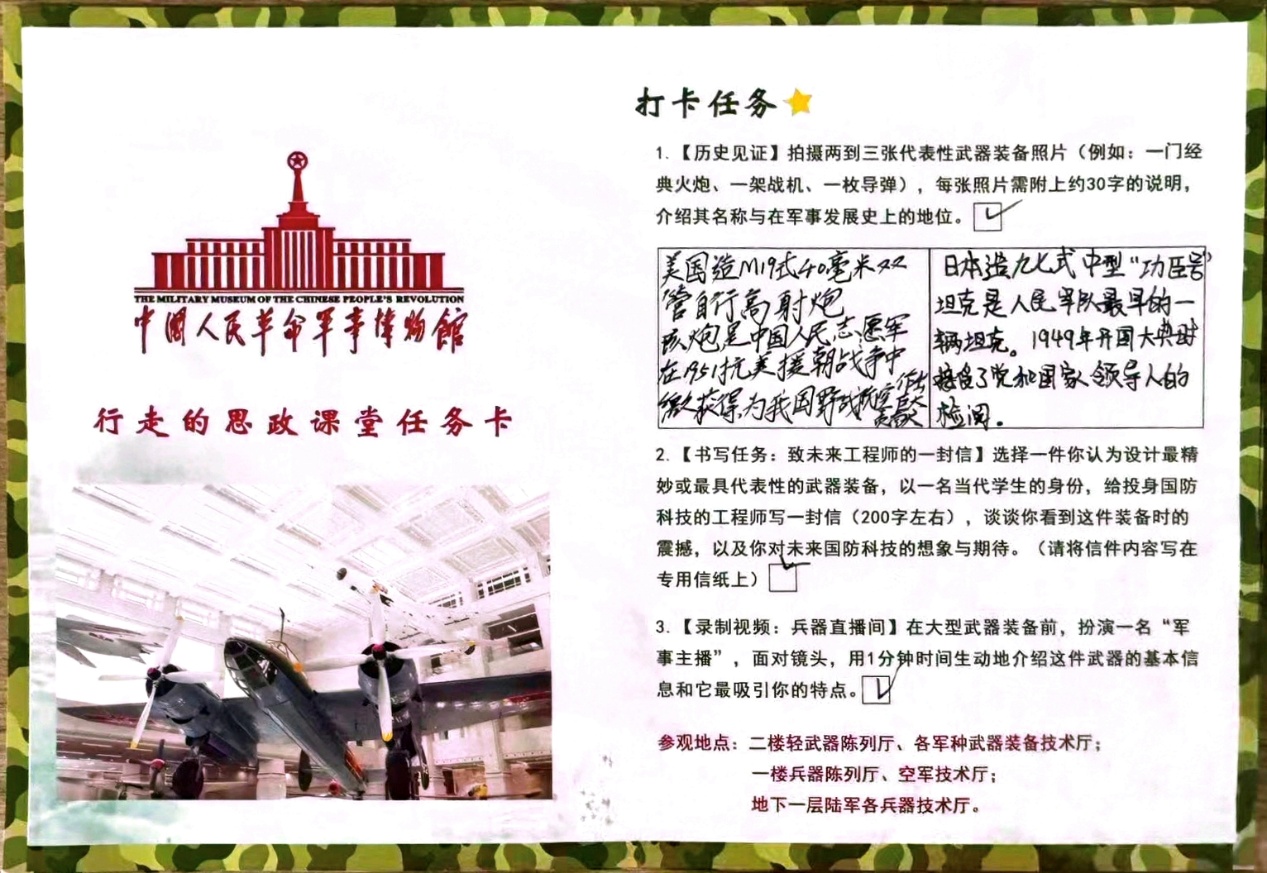 THE MILITARY MUSEUM OF THE CHINESE PEOPLE'S REVOLUTION
中国人民革命军事博物館
行走的思政课堂任务卡
打卡任务
1.【历史见证】拍摄两到三张代表性武器装备照片（例如：一门经
典火炮、一架战机、一枚导弹），每张照片需附上约30字的说明，
介绍其名称与在军事发展史上的地位。
美国造M19式40毫米双
管自行高射炮
该炮是中国人民志愿军
在1951抗美援朝战争中
缴获得,为我国野战防空
日本造九七式中型“功臣号”
坦克是人民军队最早的一
辆坦克。1949年开国大典时
接受了党和国家领导人的
检阅。
2.【书写任务：致未来工程师的一封信】选择一件你认为设计最精
妙或最具代表性的武器装备，以一名当代学生的身份，给投身国防
科技的工程师写一封信（200字左右），谈谈你看到这件装备时的
震撼，以及你对未来国防科技的想象与期待。（请将信件内容写在
专用信纸上）
3.【录制视频：兵器直播间】在大型武器装备前，扮演一名“军
事主播”，面对镜头，用1分钟时间生动地介绍这件武器的基本信
息和它最吸引你的特点。
参观地点：二楼轻武器陈列厅、各军种武器装备技术厅；
一楼兵器陈列厅、空军技术厅；
地下一层陆军各兵器技术厅。